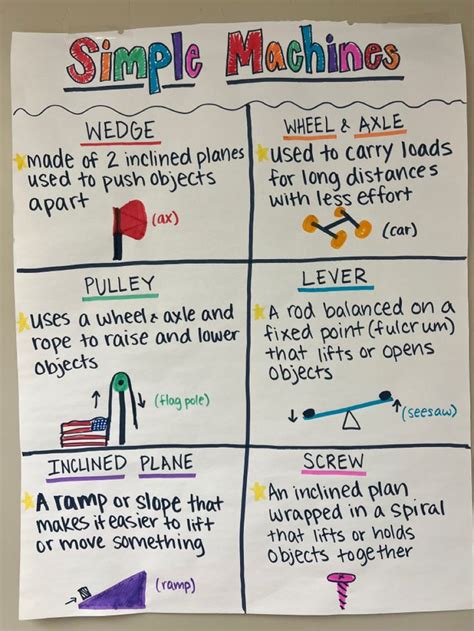 Simple Machines
WEDGE
made of 2 inclined planes
used to push objects
apart
(ax)
WHEEL & AXLE
used to carry loads
for long distances
with less effort
(car)
PULLEY
uses a wheel & axle and
rope to raise and lower
objects
(flag pole)
LEVER
A rod balanced on a
fixed point (fulcrum)
that lifts or opens
objects
(seesaw)
INCLINED PLANE
A ramp or slope that
makes it easier to lift
or move something
(ramp)
SCREW
An inclined plan
wrapped in a spiral
that lifts or holds
objects together